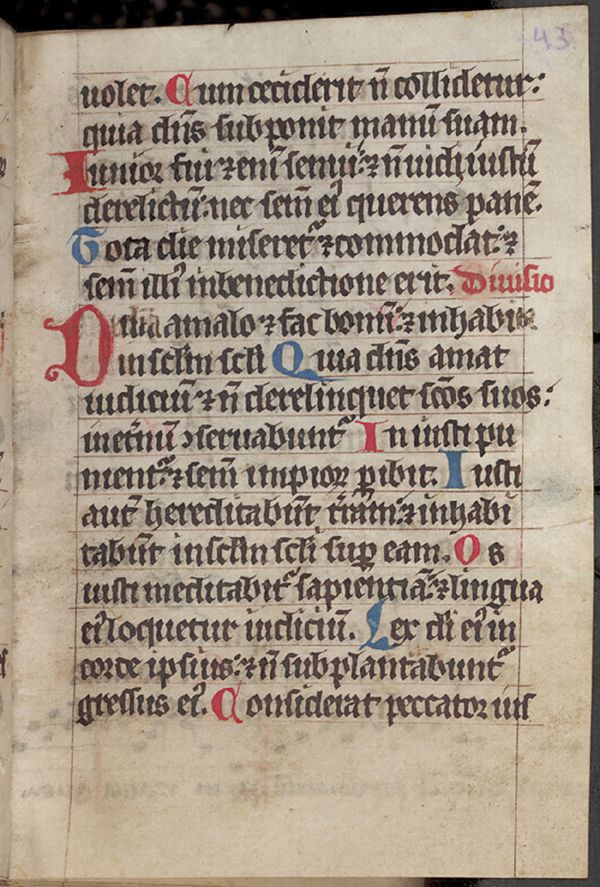 43
uolet. Cum ceciderit n̄ collidetur:
quia dn̄s subponit manū suam.
Iunior fui ⁊ enī senui: ⁊ n̄ uidi iustū
derelictū: nec sem̄ eiꝰ querens panē.
Tota die miseretᷣ ⁊ commodat: ⁊
sem̄ illiꝰ in benedictione erit. Diuisio
Declina a malo ⁊ fac bonū: ⁊ inhabita
in sclm̄ scli Quia dn̄s amat
iudiciū ⁊ n̄ derelinquet scōs suos:
in etn̄ū ↄseruabuntᷣ In iusti pu
nientᷣ: ⁊ sem̄ impioꝝ ꝑibit. Iusti
aut̄ hereditabūt tr̄am: ⁊ inhabi
tabūt in sclm̄ scli suꝑ eam. Os
iusti meditabitᷣ sapientiā: ⁊ lingua
eiꝰ loquetur iudiciū. Lex di eiꝰ in
corde ipsius: ⁊ n̄ subplantabuntᷣ
gressus eiꝰ. Considerat peccator ius